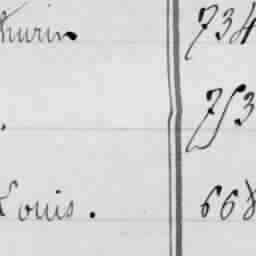 thurin 734
. 753
Louis. 668